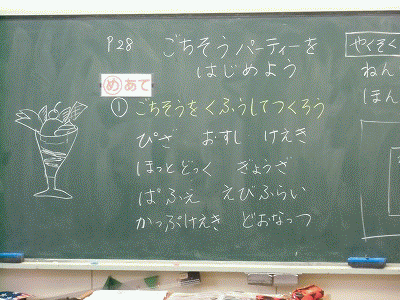 P28 ごちそうパーティーを
はじめよう
めあて
① ごちそうをくふうしてつくろう
ぴざ おすし けえき
ほっとどっく ぎょうざ
ぱふえ えびふらい
かっぷけえき どおなっつ
やくそく
ねん
ほん